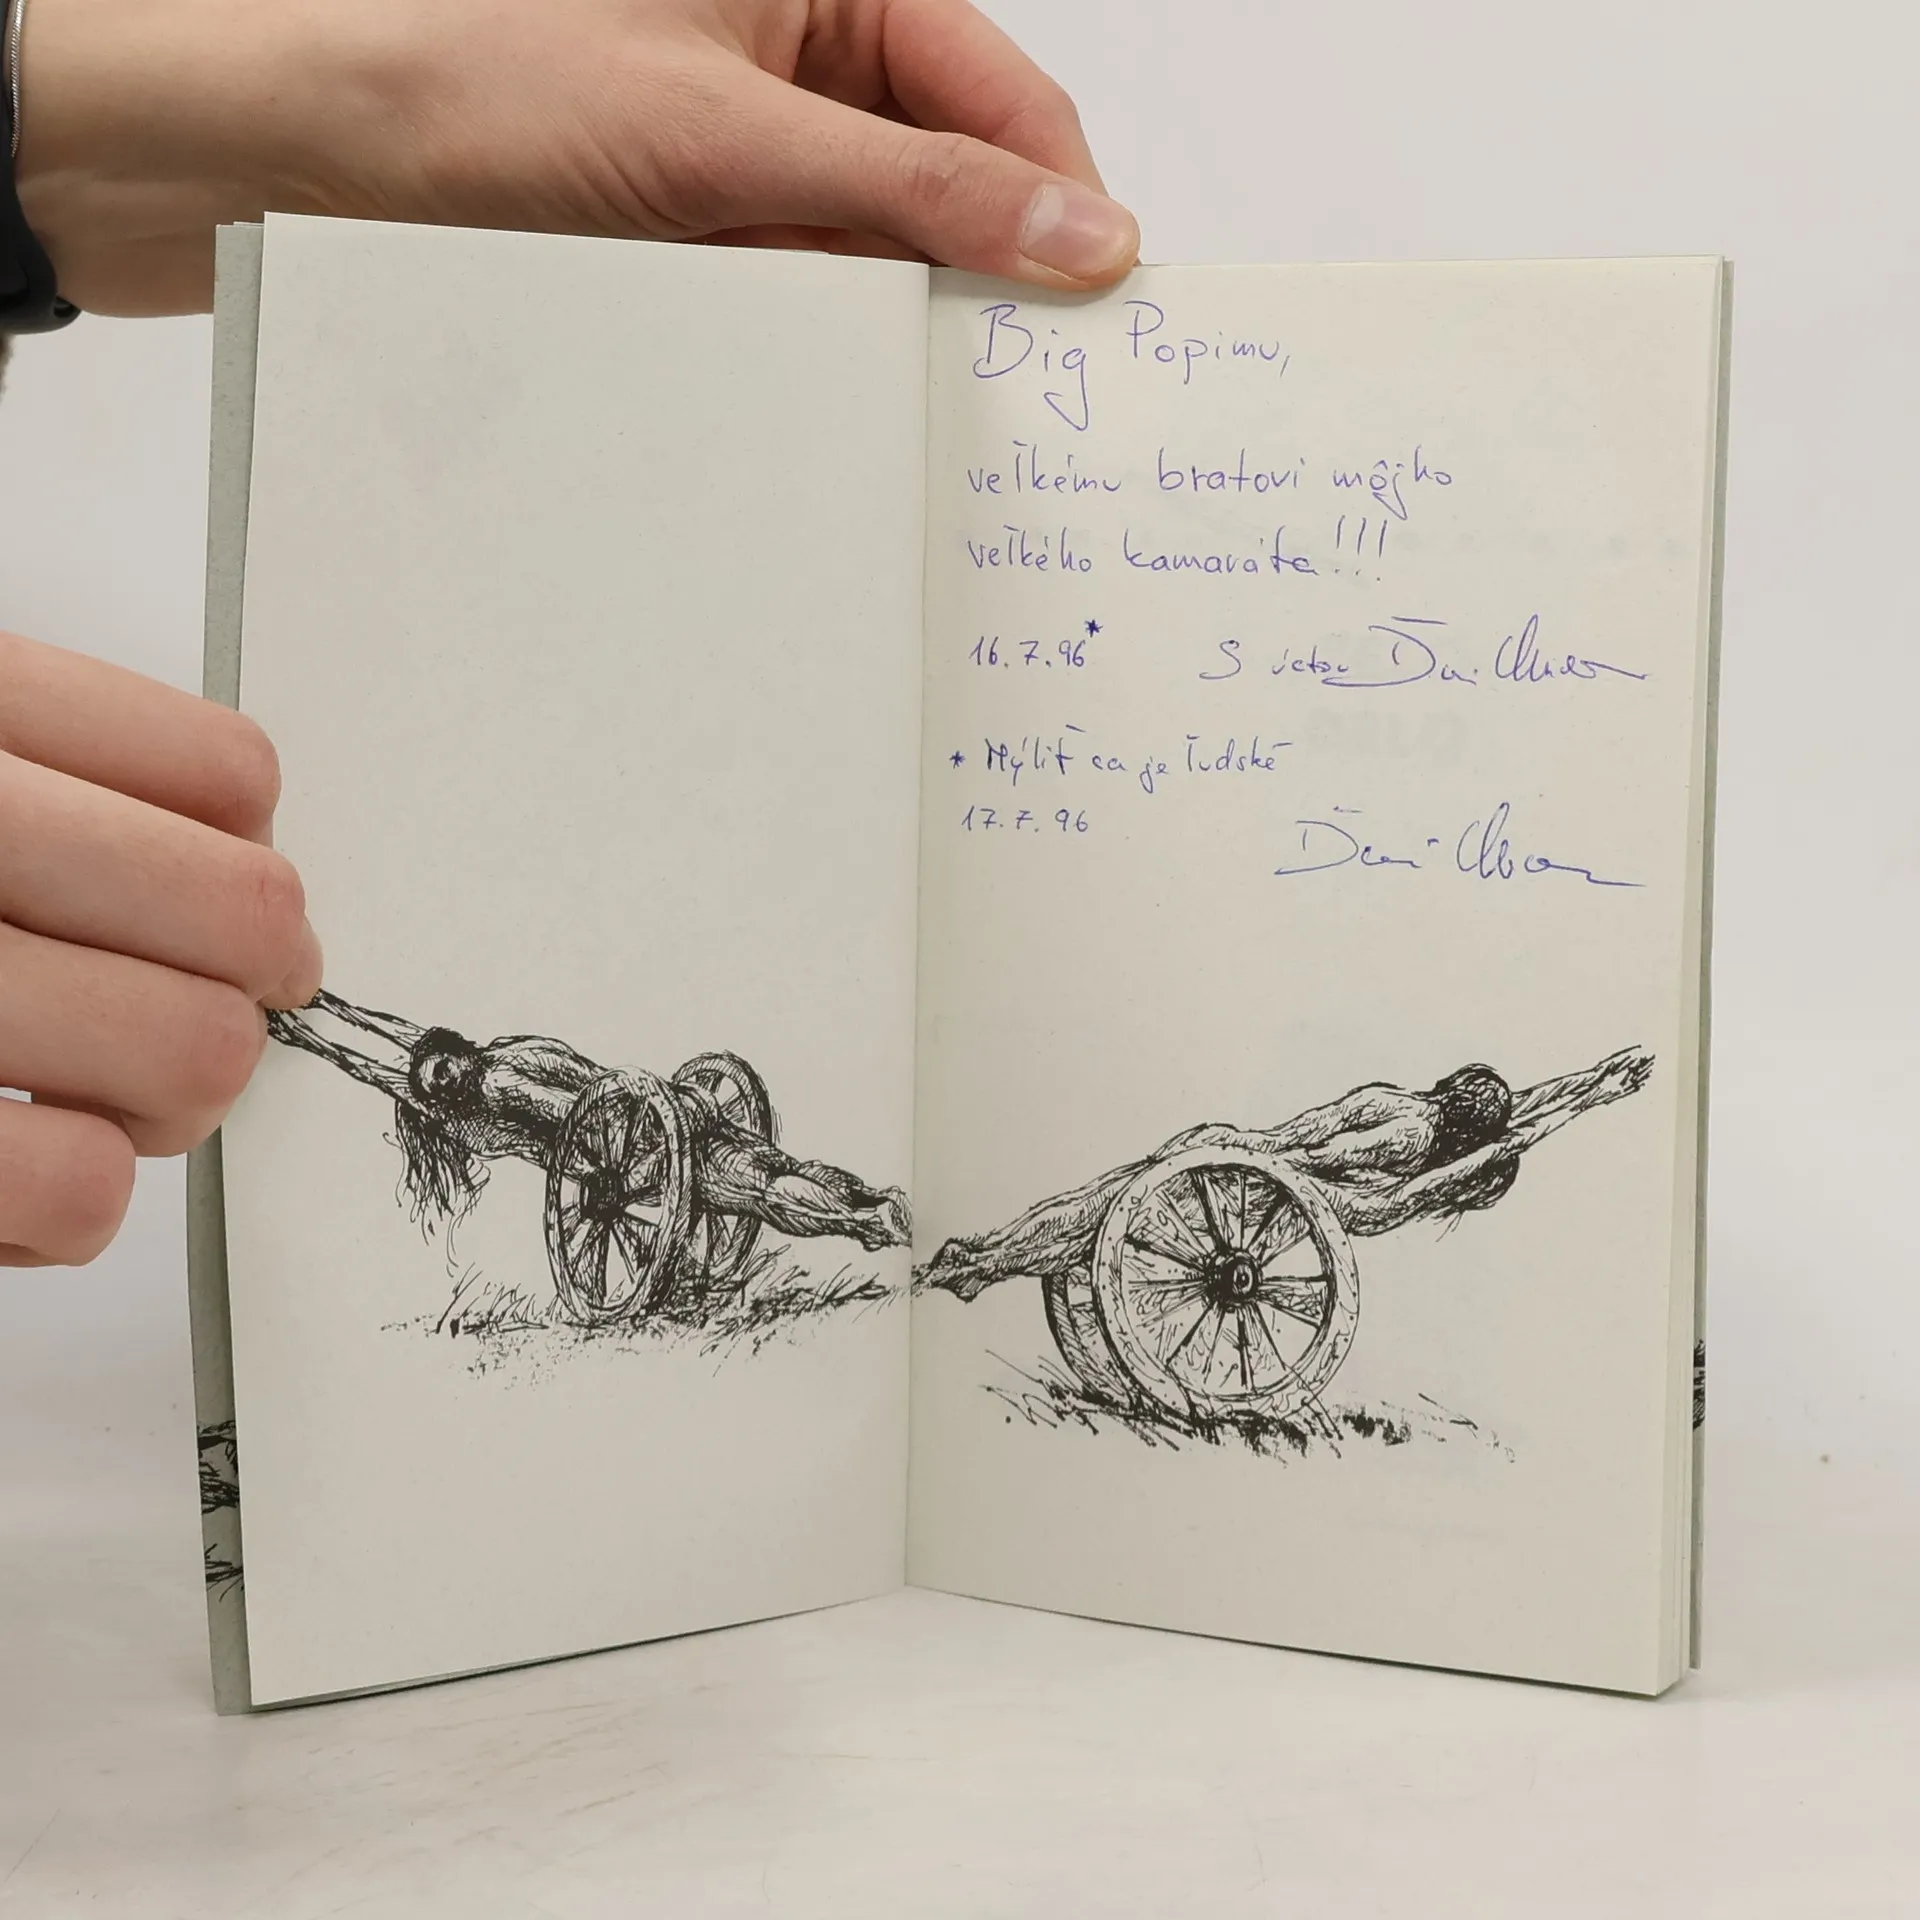 Big Popimu,
veľkému bratovi môjho
veľkého kamaráta!!!
16.7.96* S úctou
* Mýliť sa je ľudské
17.7.96